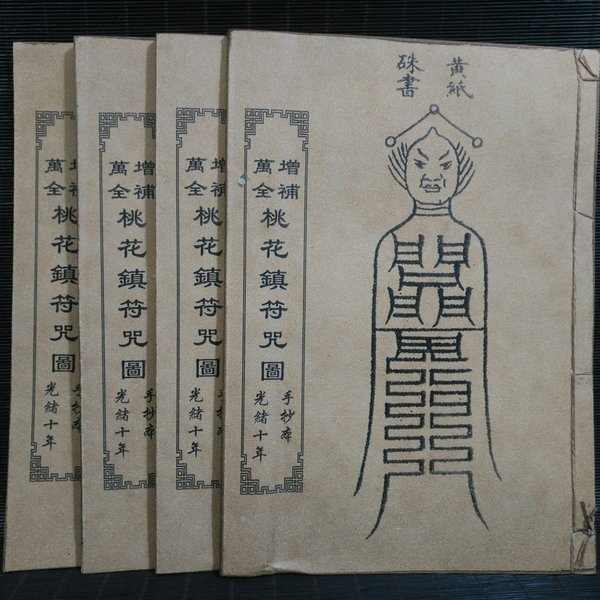 黄紙
硃書
增補
萬全
桃花鎮符咒圖
手抄本
光緒十年
增補
萬全
桃花鎮符咒圖
手抄本
光緒十年
增補
萬全
桃花鎮符咒圖
手抄本
光緒十年
增補
萬全
桃花鎮符咒圖
手抄本
光緒十年